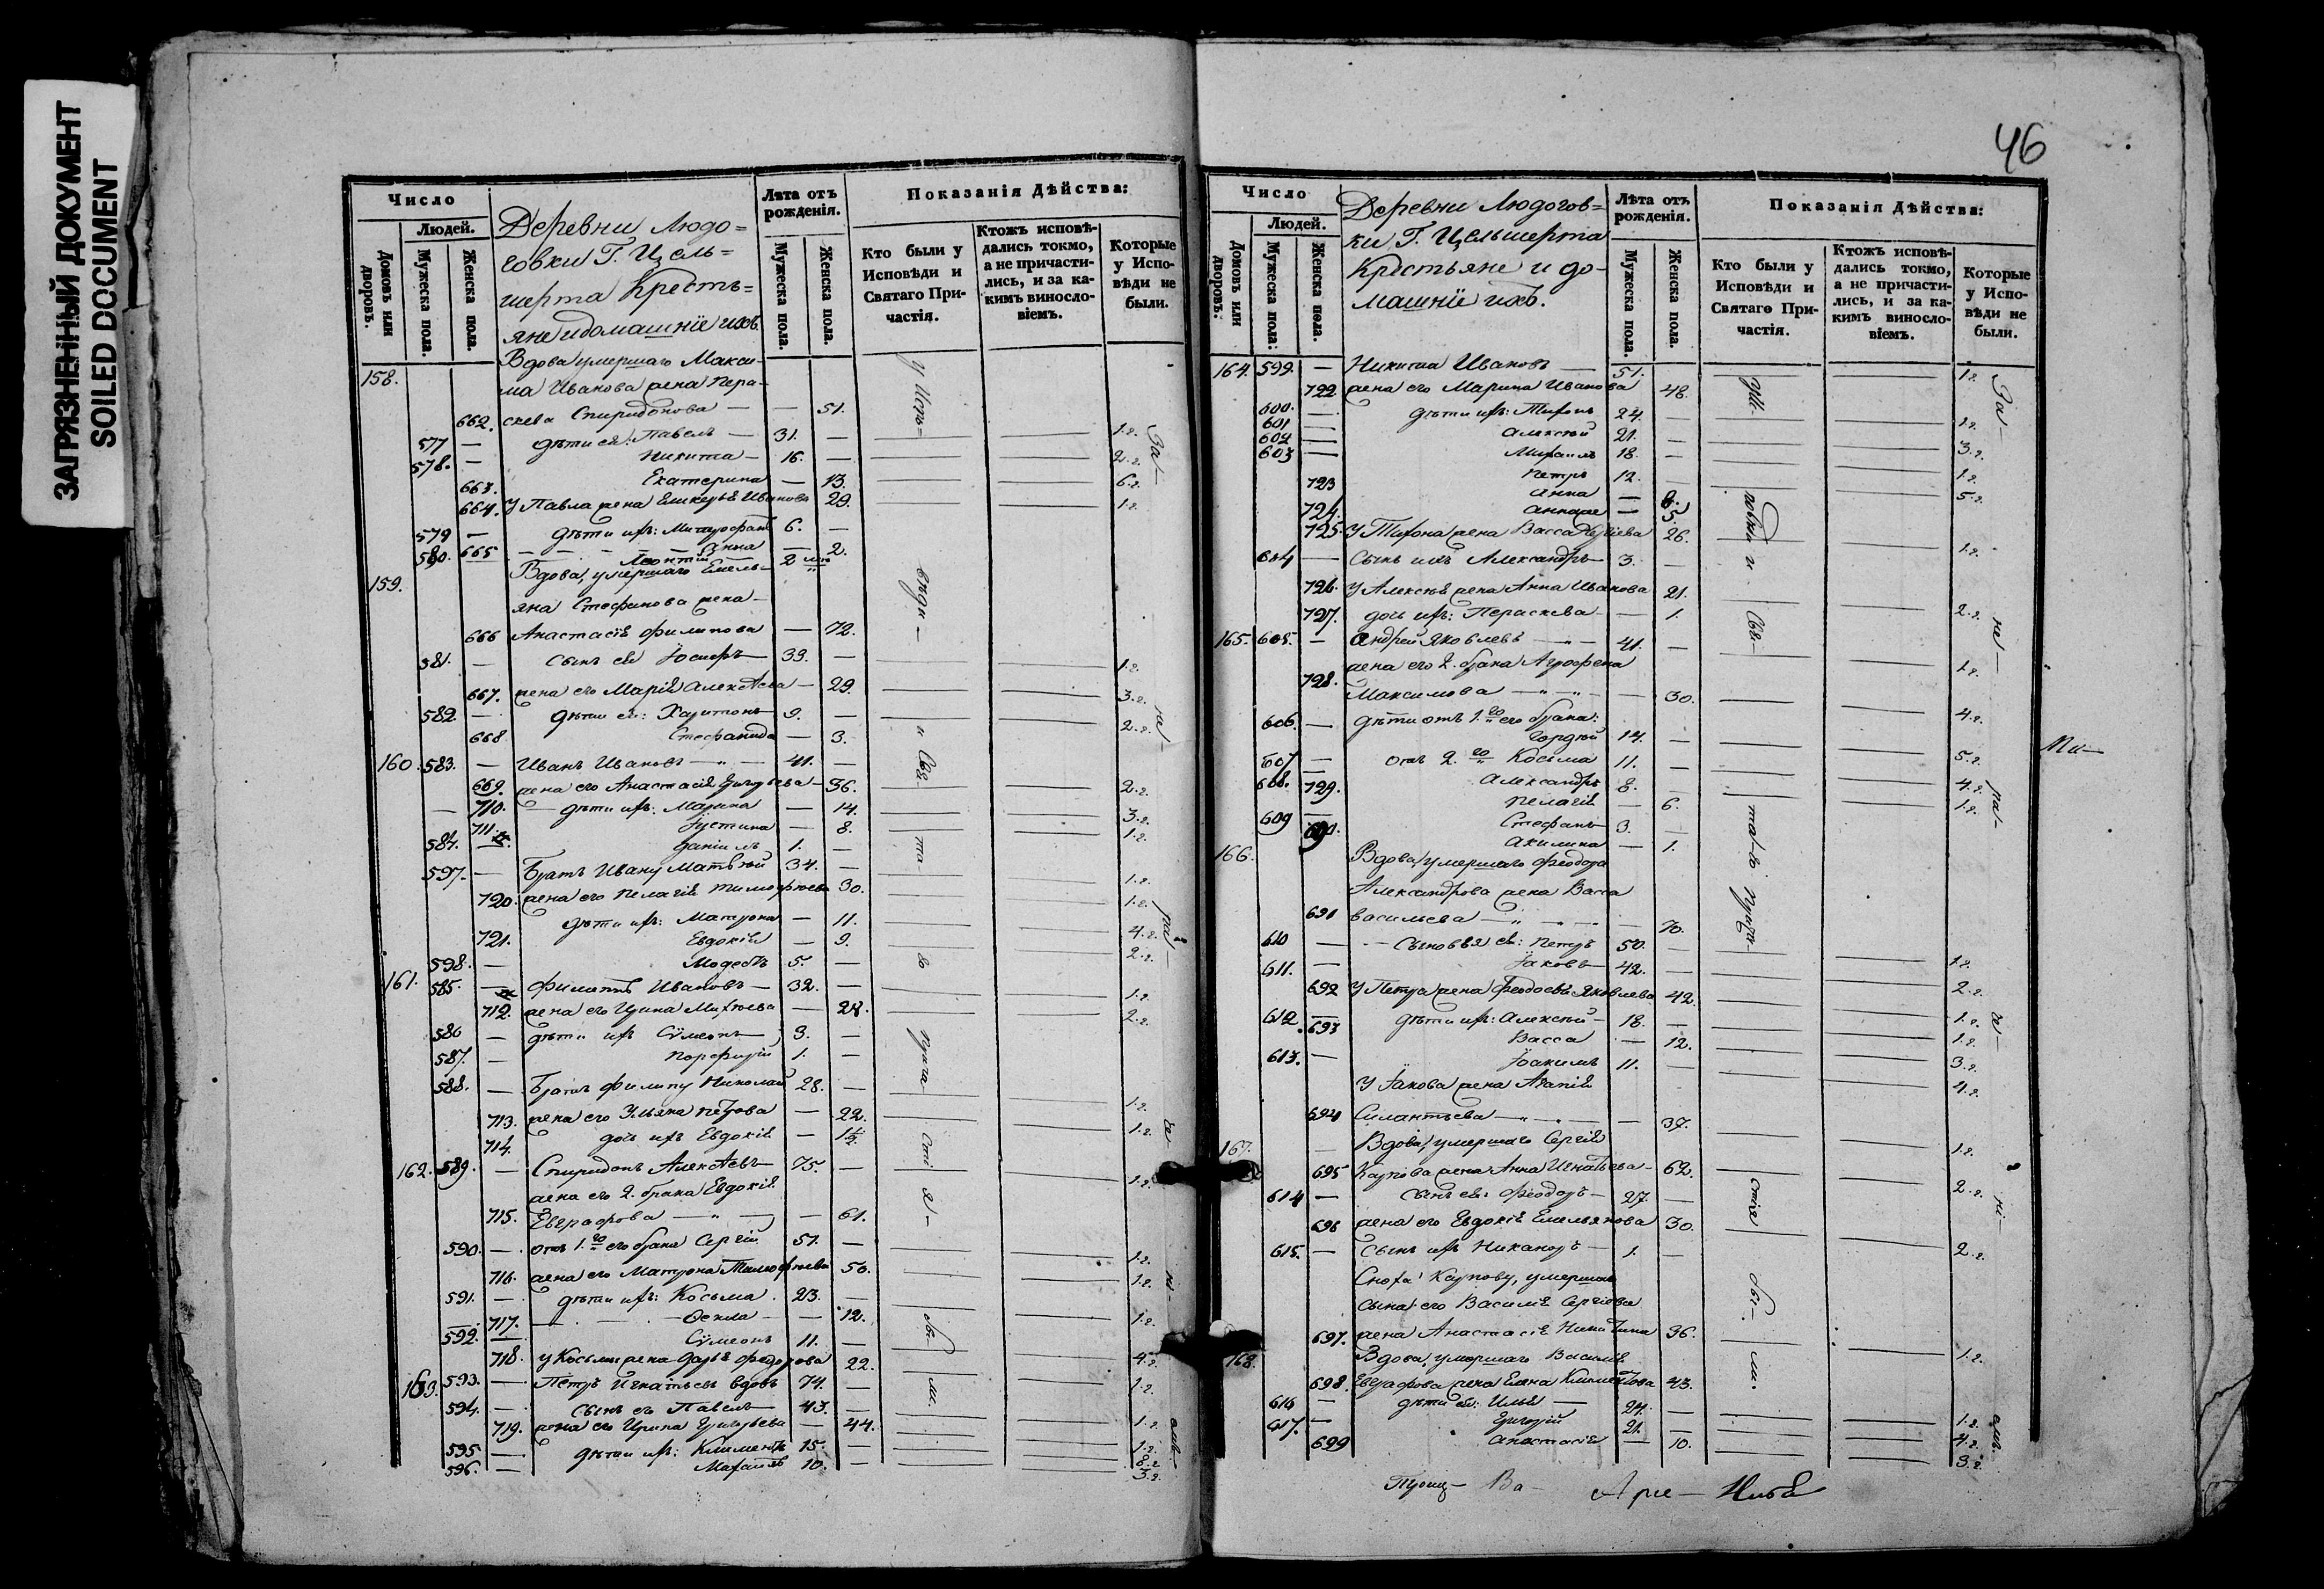 ЗАГРЯЗНЕННЫЙ ДОКУМЕНТ
SOILED DOCUMENT
Число
Людей.
Домовъ или дворовъ.
Мужеска пола.
Женска пола.
Деревни Людо=
говки Г. Цель=
шерта Кресть=
яне и домашніе ихъ.
Лѣта отъ рожденія.
Мужеска пола.
Женска пола.
Показанія Дѣйства:
Кто были у Исповѣди и Святаго Причастія.
Ктожъ исповѣдались токмо, а не причастились, и за какимъ винословіемъ.
Которые у Исповѣди не были.
158. Вдова умершаго Макси-
ма Иванова жена Пера-
662. скева Спиридонова — — 51.
577 — дѣти ея: Павелъ — 31. — 1.г.
578. — Никита — 16. — 2.г.
663. Екатерина — 13. 6.г.
664. У Павла жена Гликерья Иванова 29. 1.г.
579 — дѣти ихъ: Митрофанъ 6. —
665 Анна — 2.
580. Леонтій 2
159. Вдова, умершаго Емель-
яна Стефанова жена
666 Анастасія Филипова — 72.
581. — сынъ ея Іосифъ — 33. — 1.г.
667. жена его Марія Алексѣева — 29. 3.г.
582. — дѣти ея: Харитонъ 9. — 2.г.
668 Стефанида — 3.
160. 583. — Иванъ Ивановъ — 41. —
669. жена его Анастасія Григорьева — 36. 2.г.
710. дѣти ихъ: Марина — 14. 3.г.
711. Іустина — 8. 1.г.
584. Даніилъ 1. —
597. — Братъ Ивану Матвѣй 34. — 1.г.
720. жена его Пелагія Тимофѣева 30. 1.г.
дѣти ихъ: Матрона — 11. 4.г.
721. Евдокія — 9. 2.г.
598. — Модестъ 5. —
161. 585. — Филиппъ Ивановъ — 32. — 1.г.
712. жена его Ирина Михѣева — 28. 2.г.
586 — дѣти ихъ Сүмеонъ 3. —
587. — Порфирій 1. —
588. — Братъ Филипу Николай 28. — 1.г.
713. жена его Ульяна Петрова — 22. 1.г.
714. дочь ихъ Евдокія — 1½
162. 589. — Спиридонъ Алексѣевъ — 75. — 1.г.
жена его 2. брака Евдокія
715. Евграфова — — 61.
590. — отъ 1.го его брака Сергій 51. — 1.г.
716. жена его Матрона Тимофѣева 50. 1.г.
591. — дѣти ихъ: Косьма 23. — 1.г.
717. Фекла — 12.
592. Сүмеонъ 11. —
718. у Косьмы жена Дарья Федорова 22. 4.г.
163. 593. — Петръ Игнатьевъ вдовъ 74. — 1.г.
594. — сынъ его Павелъ 43. — 1.г.
719. жена его Ирина Григорьева — 44. 1.г.
595 — дѣти ихъ: Климентъ 15. — 8.г.
596. — Михаилъ 10. — 3.г.
46
Число
Людей.
Домовъ или дворовъ.
Мужеска пола:
Женска пола.
Деревни Людогов=
ки Г. Цельшерта
Крестьяне и до-
машніе ихъ.
Лѣта отъ рожденія.
Мужеска пола.
Женска пола.
Показанія Дѣйства:
Кто были у Исповѣди и Святаго Причастія.
Ктожъ исповѣдались токмо, а не причастились, и за какимъ винословіемъ.
Которые у Исповѣди не были.
164. 599. — Никита Ивановъ — 51. 1.г.
722 жена его Марина Иванова 48.
600. — дѣти ихъ: Тихонъ 24. — 1.г.
601 — Алексѣй 21. — 3.г.
602 — Михаилъ 18. — 1.г.
603 — Петръ 12. — 5.г.
723 Анна —
724. Анна же — 5.
725. У Тихона жена Васса Сергіева 26. 1.г.
604 — Сынъ ихъ Александръ 3. —
726. У Алексѣя жена Анна Иванова 21. 2.г.
727. дочь ихъ: Пераскева — 1.
165. 605. — Андрей Яковлевъ — 41. — 1.г.
жена его 2. брака Агрофена
728. Максимова — — 30. 4.г.
606. — дѣти отъ 1.го его брака:
Гордѣй 14. — 5.г.
607 — отъ 2.го Косьма 11. — 4.г.
608. — Александръ 8. — 1.г.
729. Пелагія — 6.
609 — Стефанъ 3. —
690. Акилина — 1.
166. Вдова умершаго Феодора
Александрова жена Васса
691 Васильева — — 70.
610 — Сыновья ея: Петръ 50. — 1.г.
611. — Іаковъ 42. — 2.г.
692 У Петра жена Феодосья Яковлева 42. 1.г.
612. — дѣти ихъ: Алексѣй 18. — 1.г.
693 Васса — 12. 3.г.
613. — Іоакимъ 11. — 4.г.
У Іакова жена Агапія
694 Силантьева — — 37. 1.г.
167. Вдова, умершаго Сергія
695 Карпова жена Анна Игнатьева — 62. 2.г.
614 — сынъ ея: Феодоръ — 27. —
696 жена его Евдокія Емельянова 30. 2.г.
615. — Сынъ ихъ Никаноръ — 1. —
Сноха Карпову, умершаго
сына его Василія Сергіева
697. жена Анастасія Никитина 36. 1.г.
168. Вдова, умершаго Василія
698. Евграфова жена Елена Климентова 43.
616 — дѣти ея: Илья — 24. — 1.г.
617. — Григорій 21. — 4.г.
699 Анастасія — 10. 3.г.
Троиц— Ва— Арх— Илья